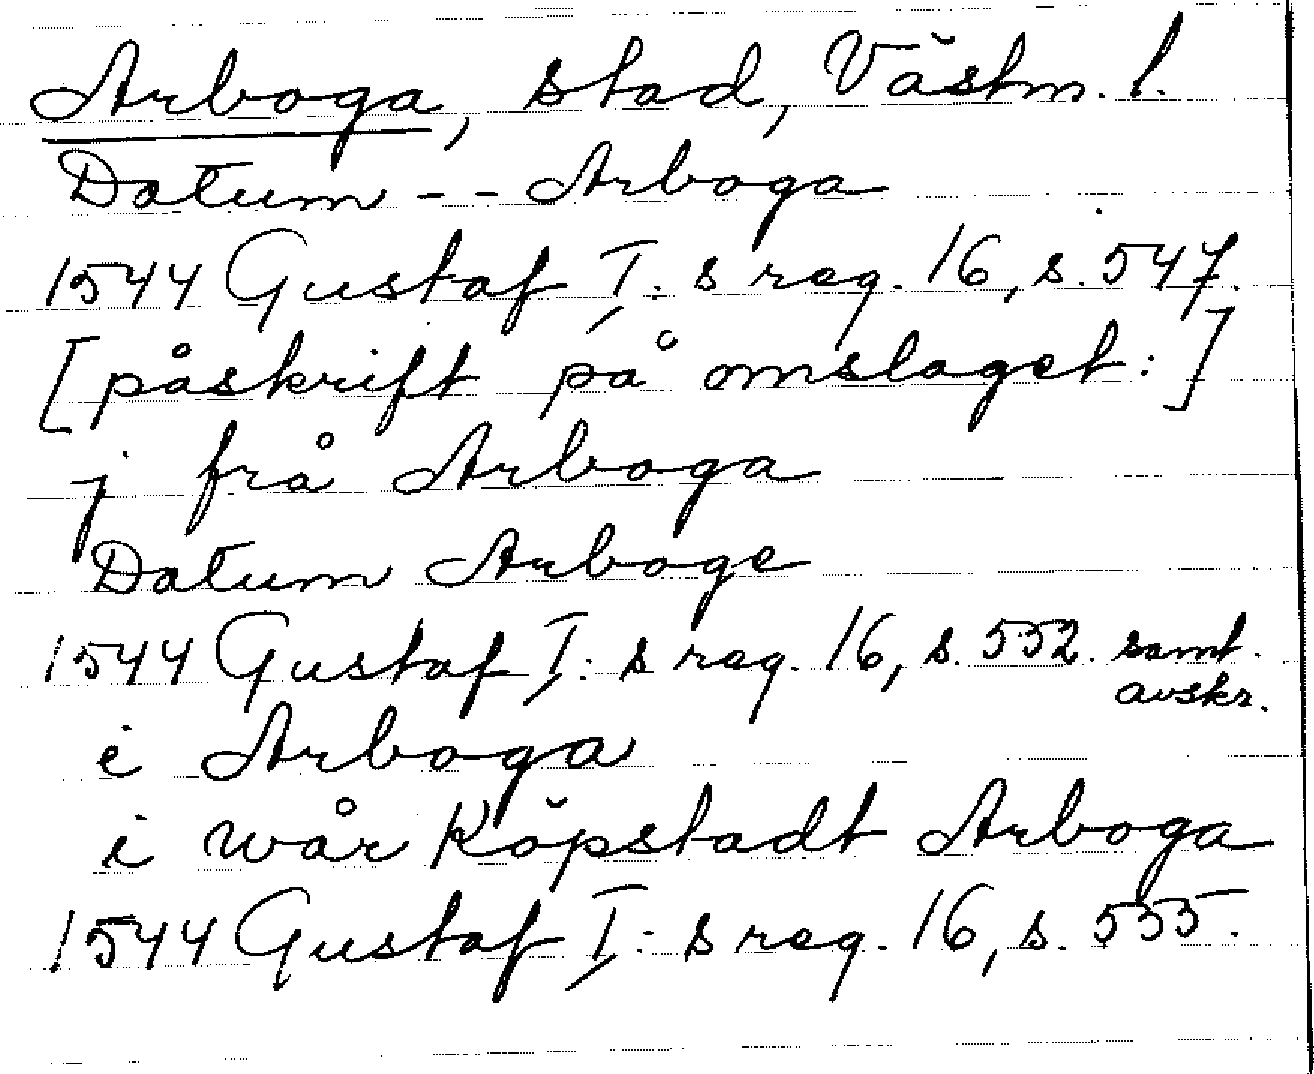 Arboga, stad, Västm. l.
Datum -- Arboga
1544 Gustaf I:s reg. 16, s. 547.
[påskrift på omslaget:]
j frå Arboga
Datum Arboge
1544 Gustaf I:s reg. 16, s. 552. samt.
avskr.
i Arboga
i wår Köpstadt Arboga
1544 Gustaf I:s reg. 16, s. 555.